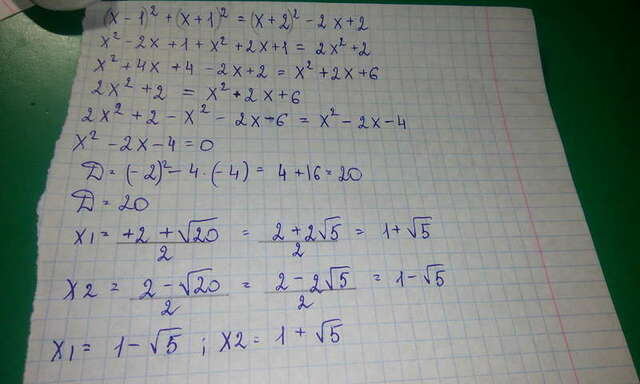 (x-1)² + (x+1)² = (x+2)² - 2x+2
x² - 2x + 1 + x² + 2x + 1 = 2x² + 2
x² + 4x + 4 - 2x + 2 = x² + 2x + 6
2x² + 2 = x² + 2x + 6
2x² + 2 - x² - 2x - 6 = x² - 2x - 4
x² - 2x - 4 = 0
D = (-2)² - 4 · (-4) = 4 + 16 = 20
D = 20
x1 = +2 + √20 / 2 = 2 + 2√5 / 2 = 1 + √5
x2 = 2 - √20 / 2 = 2 - 2√5 / 2 = 1 - √5
x1 = 1 - √5 ; x2 = 1 + √5